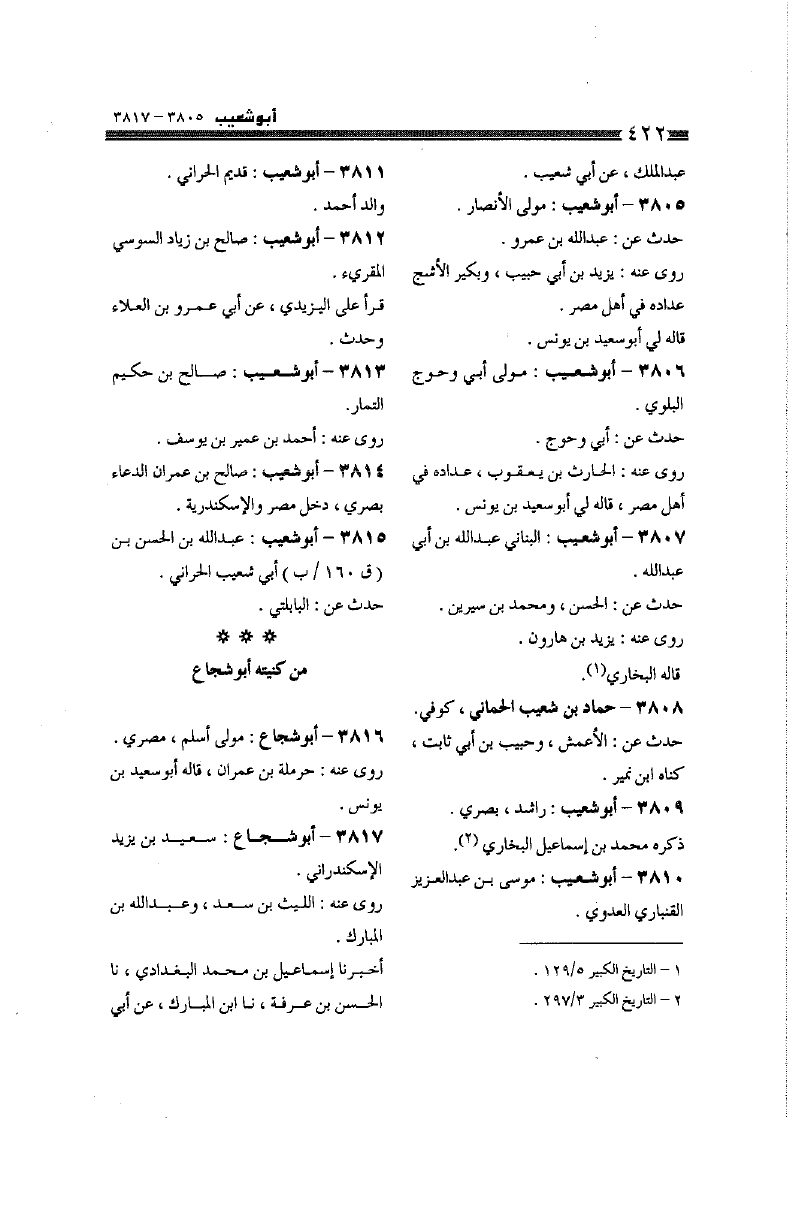 ٤٢٢
أبوشعيب ٣٨٠٥ - ٣٨١٧
عبدالملك ، عن أبي شعيب .
٣٨٠٥ - أبوشعيب : مولى الأنصار .
حدث عن : عبدالله بن عمرو .
روى عنه : يزيد بن أبي حبيب ، وبكير الأشج
عداده في أهل مصر .
قاله لي أبوسعيد بن يونس .
٣٨٠٦ - أبوشعيب : مولى أبي وحوح
البلوي .
حدث عن : أبي وحوح .
روى عنه : الحارث بن يعقوب ، عداده في
أهل مصر ، قاله لي أبوسعيد بن يونس .
٣٨٠٧ - أبوشعيب : البناني عبدالله بن أبي
عبدالله .
حدث عن : الحسن ، ومحمد بن سيرين .
روى عنه : يزيد بن هارون .
قاله البخاري(١).
٣٨٠٨ - حماد بن شعيب الحماني ، كوفي.
حدث عن : الأعمش ، وحبيب بن أبي ثابت ،
كناه ابن نمير .
٣٨٠٩ - أبوشعيب : راشد ، بصري .
ذكره محمد بن إسماعيل البخاري (٢).
٣٨١٠ - أبوشعيب : موسى بن عبدالعزيز
القنباري العدوي .
١ - التاريخ الكبير ١٢٩/٥ .
٢ - التاريخ الكبير ٢٩٧/٣ .
٣٨١١ - أبوشعيب : قديم الحراني .
والد أحمد .
٣٨١٢ - أبوشعيب : صالح بن زياد السوسي
المقريء .
قرأ على اليزيدي ، عن أبي عمرو بن العلاء
وحدث .
٣٨١٣ - أبوشعيب : صالح بن حكيم
التمار.
روى عنه : أحمد بن عمير بن يوسف .
٣٨١٤ - أبوشعيب : صالح بن عمران الدعاء
بصري ، دخل مصر والإسكندرية .
٣٨١٥ - أبوشعيب : عبدالله بن الحسن بن
( ق ١٦٠ / ب ) أبي شعيب الحراني .
حدث عن : البابلتي .
* * *
من كنيته أبوشجاع
٣٨١٦ - أبوشجاع : مولى أسلم ، مصري .
روى عنه : حرملة بن عمران ، قاله أبوسعيد بن
يونس .
٣٨١٧ - أبوشجاع : سعيد بن يزيد
الإسكندراني .
روى عنه : الليث بن سعد ، وعبدالله بن
المبارك .
أخبرنا إسماعيل بن محمد البغدادي ، نا
الحسن بن عرفة ، نا ابن المبارك ، عن أبي